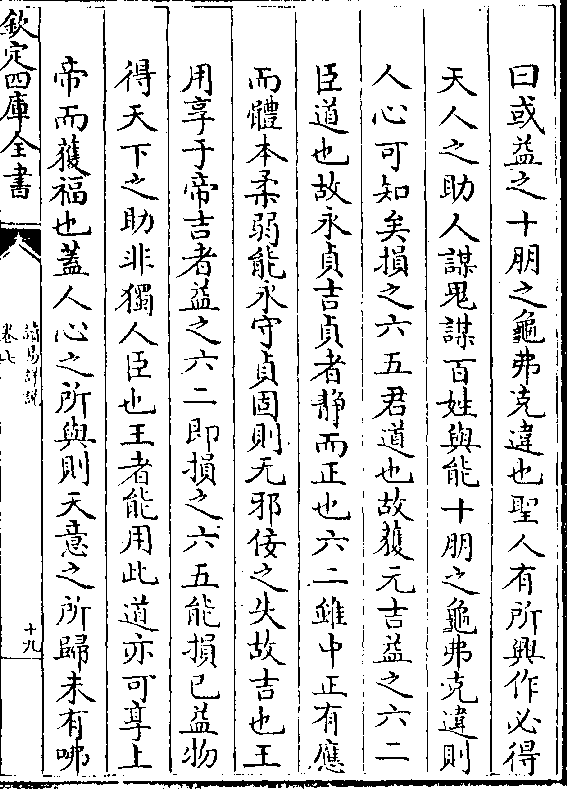 曰或益之十朋之龜弗克違也聖人有所興作必得
天人之助人謀鬼謀百姓與能十朋之龜弗克違則
人心可知矣損之六五君道也故獲元吉益之六二
臣道也故永貞吉貞者静而正也六二雖中正有應
而體本柔弱能永守貞固則无邪佞之失故吉也王
用享于帝吉者益之六二即損之六五能損已益物
得天下之助非獨人臣也王者能用此道亦可享上
帝而獲福也蓋人心之所與則天意之所歸未有咈
欽定四庫全書
讀易詳說
卷七
十九